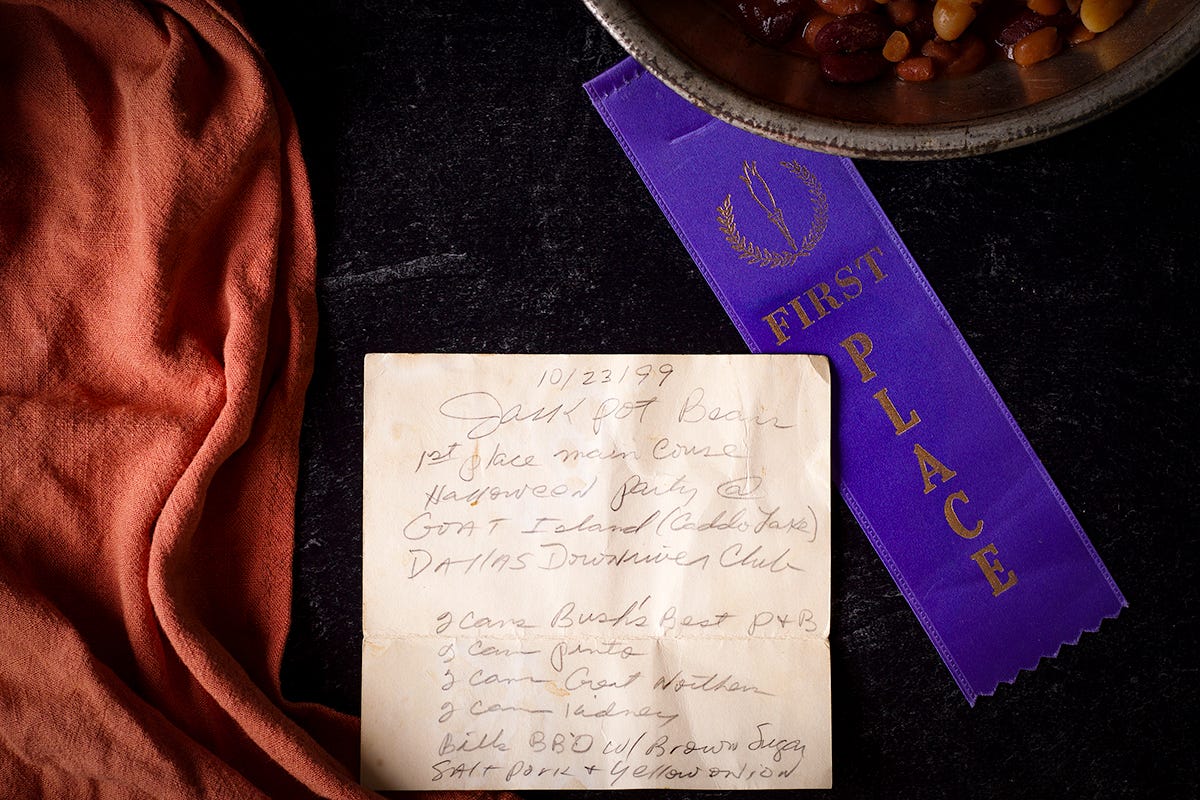 FIRST
PLACE
10/23/99
Jack pot Beans
1st place main Couse
Halloween party @
GOAT Island (Caddo Lake)
DAllAS Downriver Club
2 cans Bush's Best P+B
2 can pinto
2 cans Great Northern
2 can kidney
Bills BBQ w/ Brown Sugar
SAlt Pork + Yellow onion